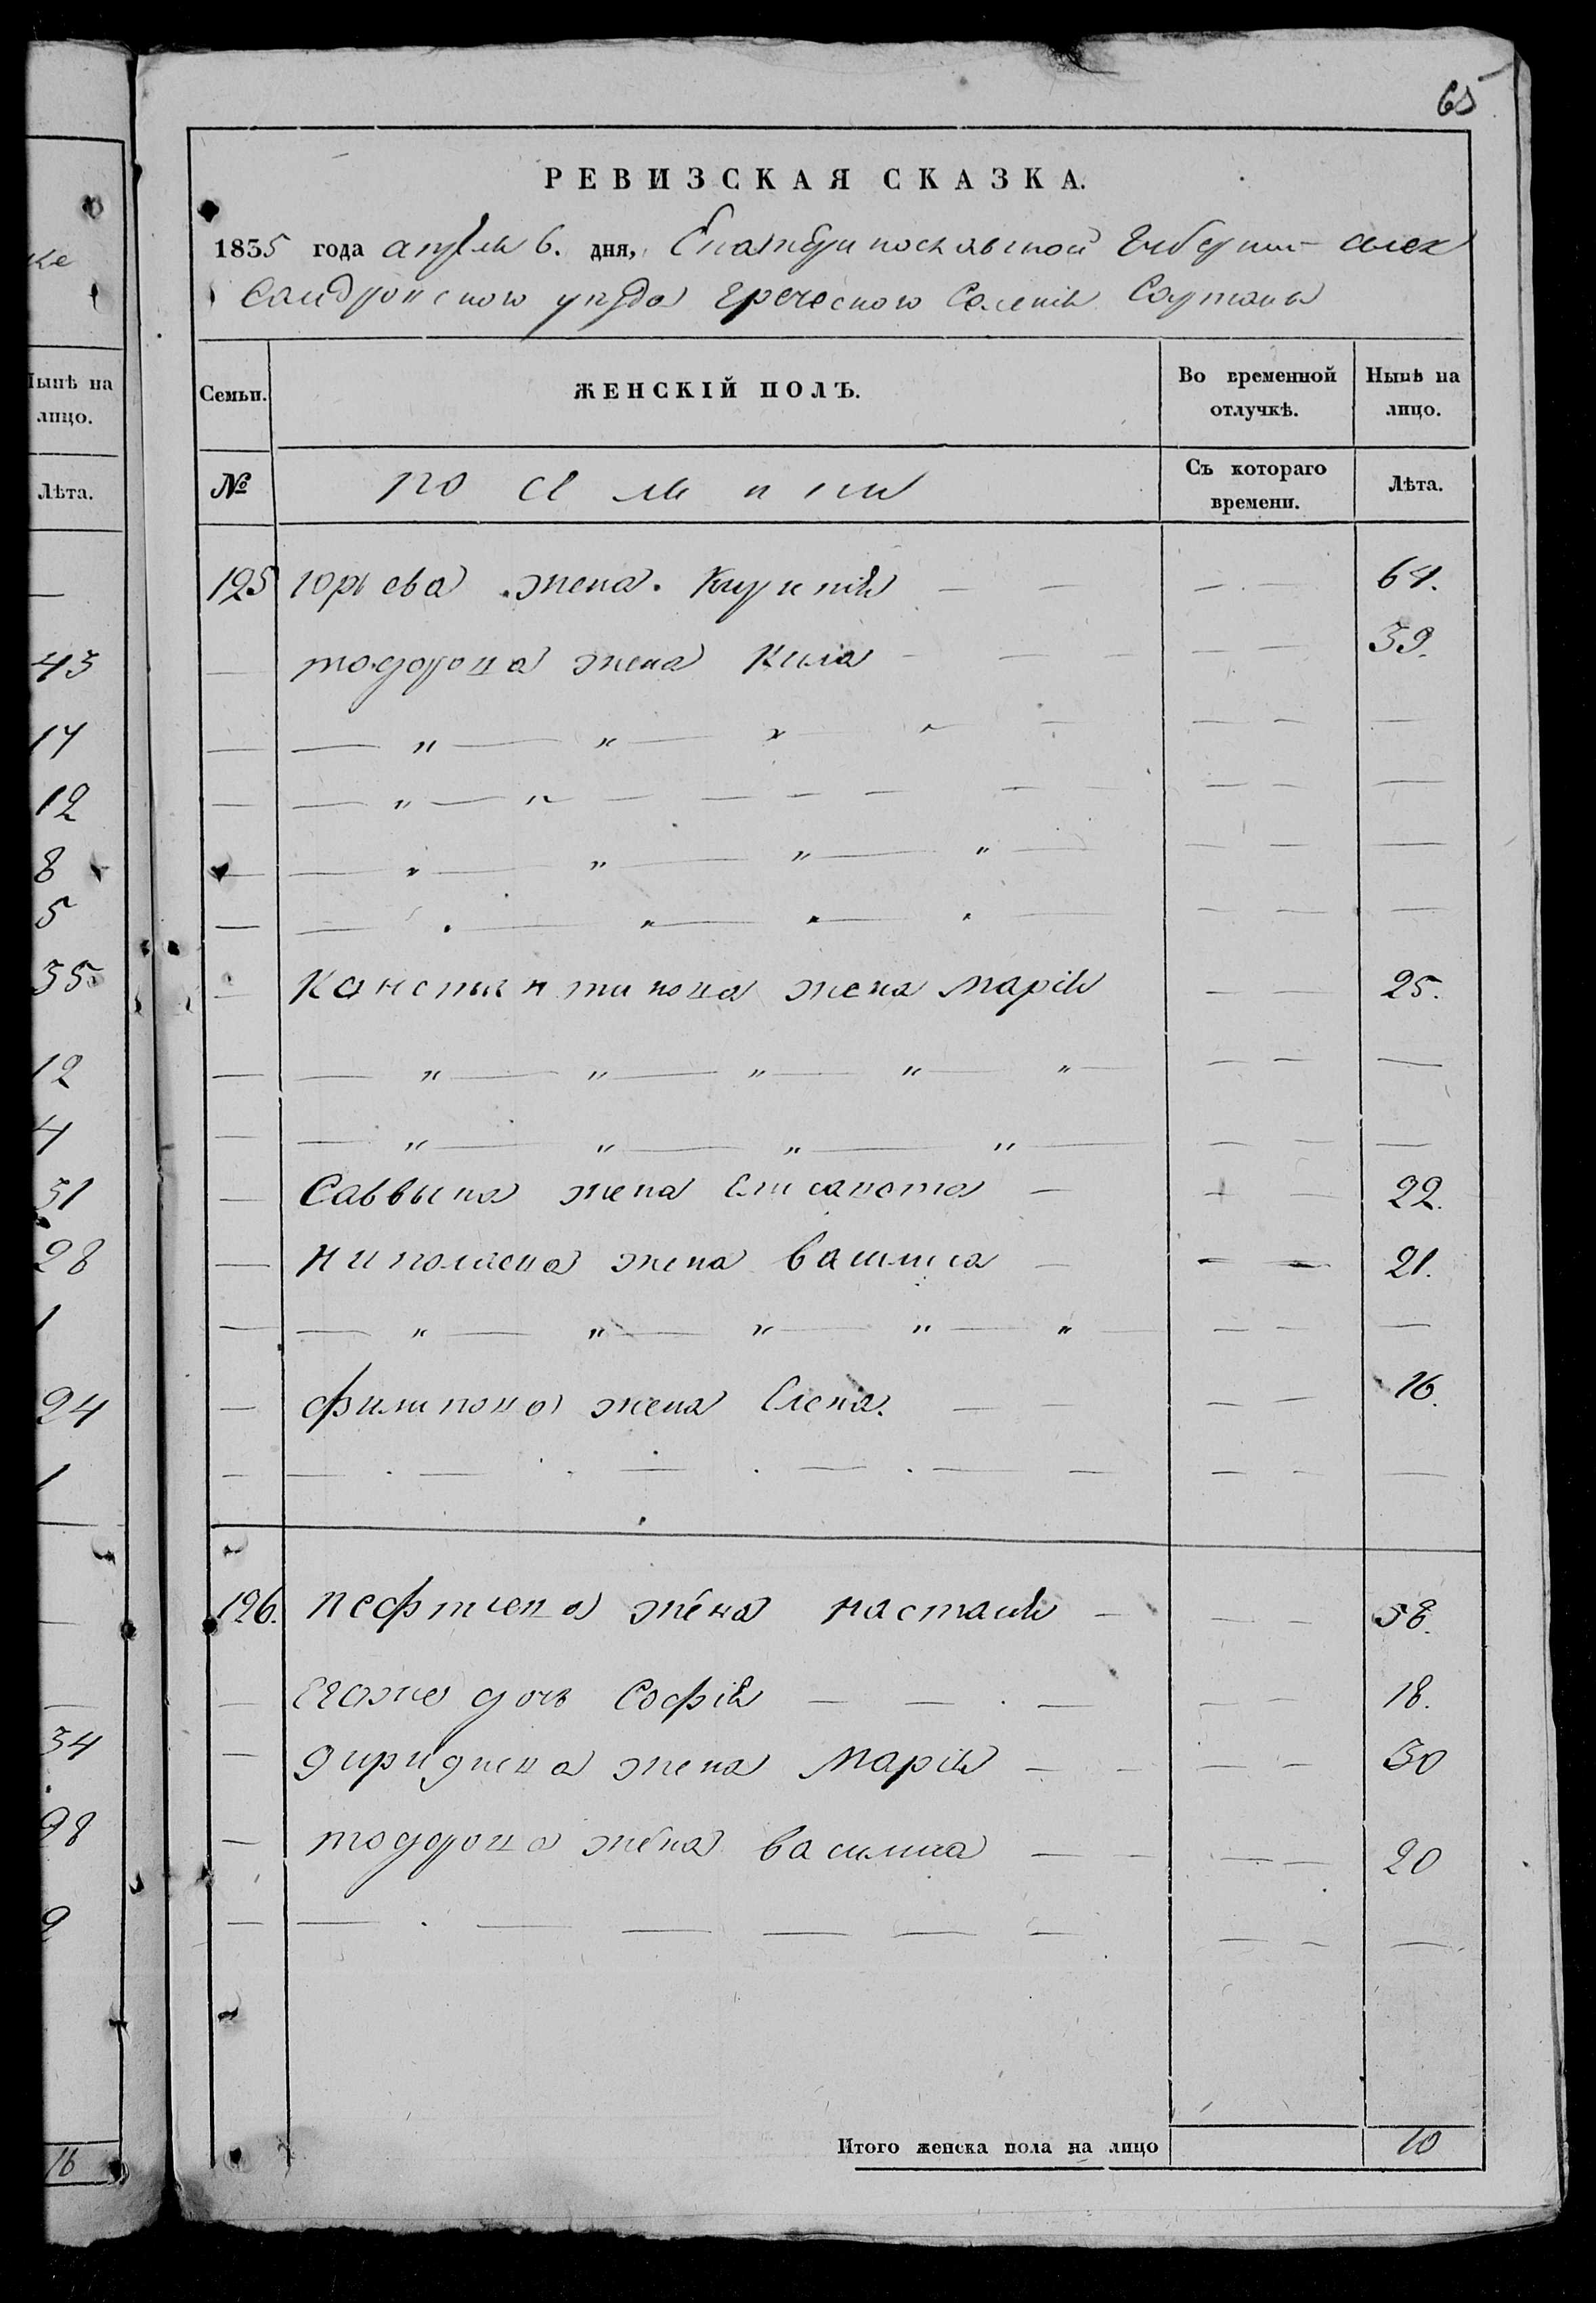 65
РЕВИЗСКАЯ СКАЗКА.
1835 года апреля 6. дня, Екатеринославской Губернии алек
сандровского уезда греческого Селенія Сартаны
Семьи. ЖЕНСКІЙ ПОЛЪ. Во временной отлучкѣ. Нынѣ на лицо.
№ Съ котораго времени. Лѣта.
125 юрьева жена. Кирикія — — — — 64.
— тодорова жена Кила — — — — — 39.
— Константинова жена Марія — — 25.
— Саввына жена Елисавета — — 22.
— николаева жена Василиса — — — 21.
— филипова жена Елена. — — — — 16.
126. нефтиева жена настасія — — — 58.
— Егоже дочь Софія — — — — — 18.
— Спиридиева жена Марія — — — — 30
— тодорова жена Василиса — — — — 20
Итого женска пола на лицо 10
ке
Нынѣ на
лицо.
Лѣта.
—
43
14
12
8
5
35
12
4
51
28
1
24
1
—
—
34
28
9
16